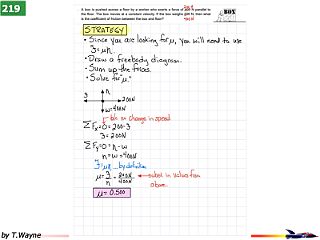 219
A box is pushed across a floor by a worker who exerts a force of 200 N parallel to
the floor. The box moves at a constant velocity. If the box weighs 400 N then what
is the coefficient of friction between the box and floor?
BOX
STRATEGY
• Since you are looking for μ, you will need to use
ℱ=μn.
• Draw a freebody diagram.
• Sum up the forces.
• Solve for "μ"
n
ℱ
200N
w=400N
b/c no change in speed
ΣFx=0=200-ℱ
ℱ=200N
ΣFy=0=n-w
n=w=400N
ℱ=μn by definition
μ=ℱ/n=200N/400N
subst in values from
above.
μ=0.500
by T.Wayne